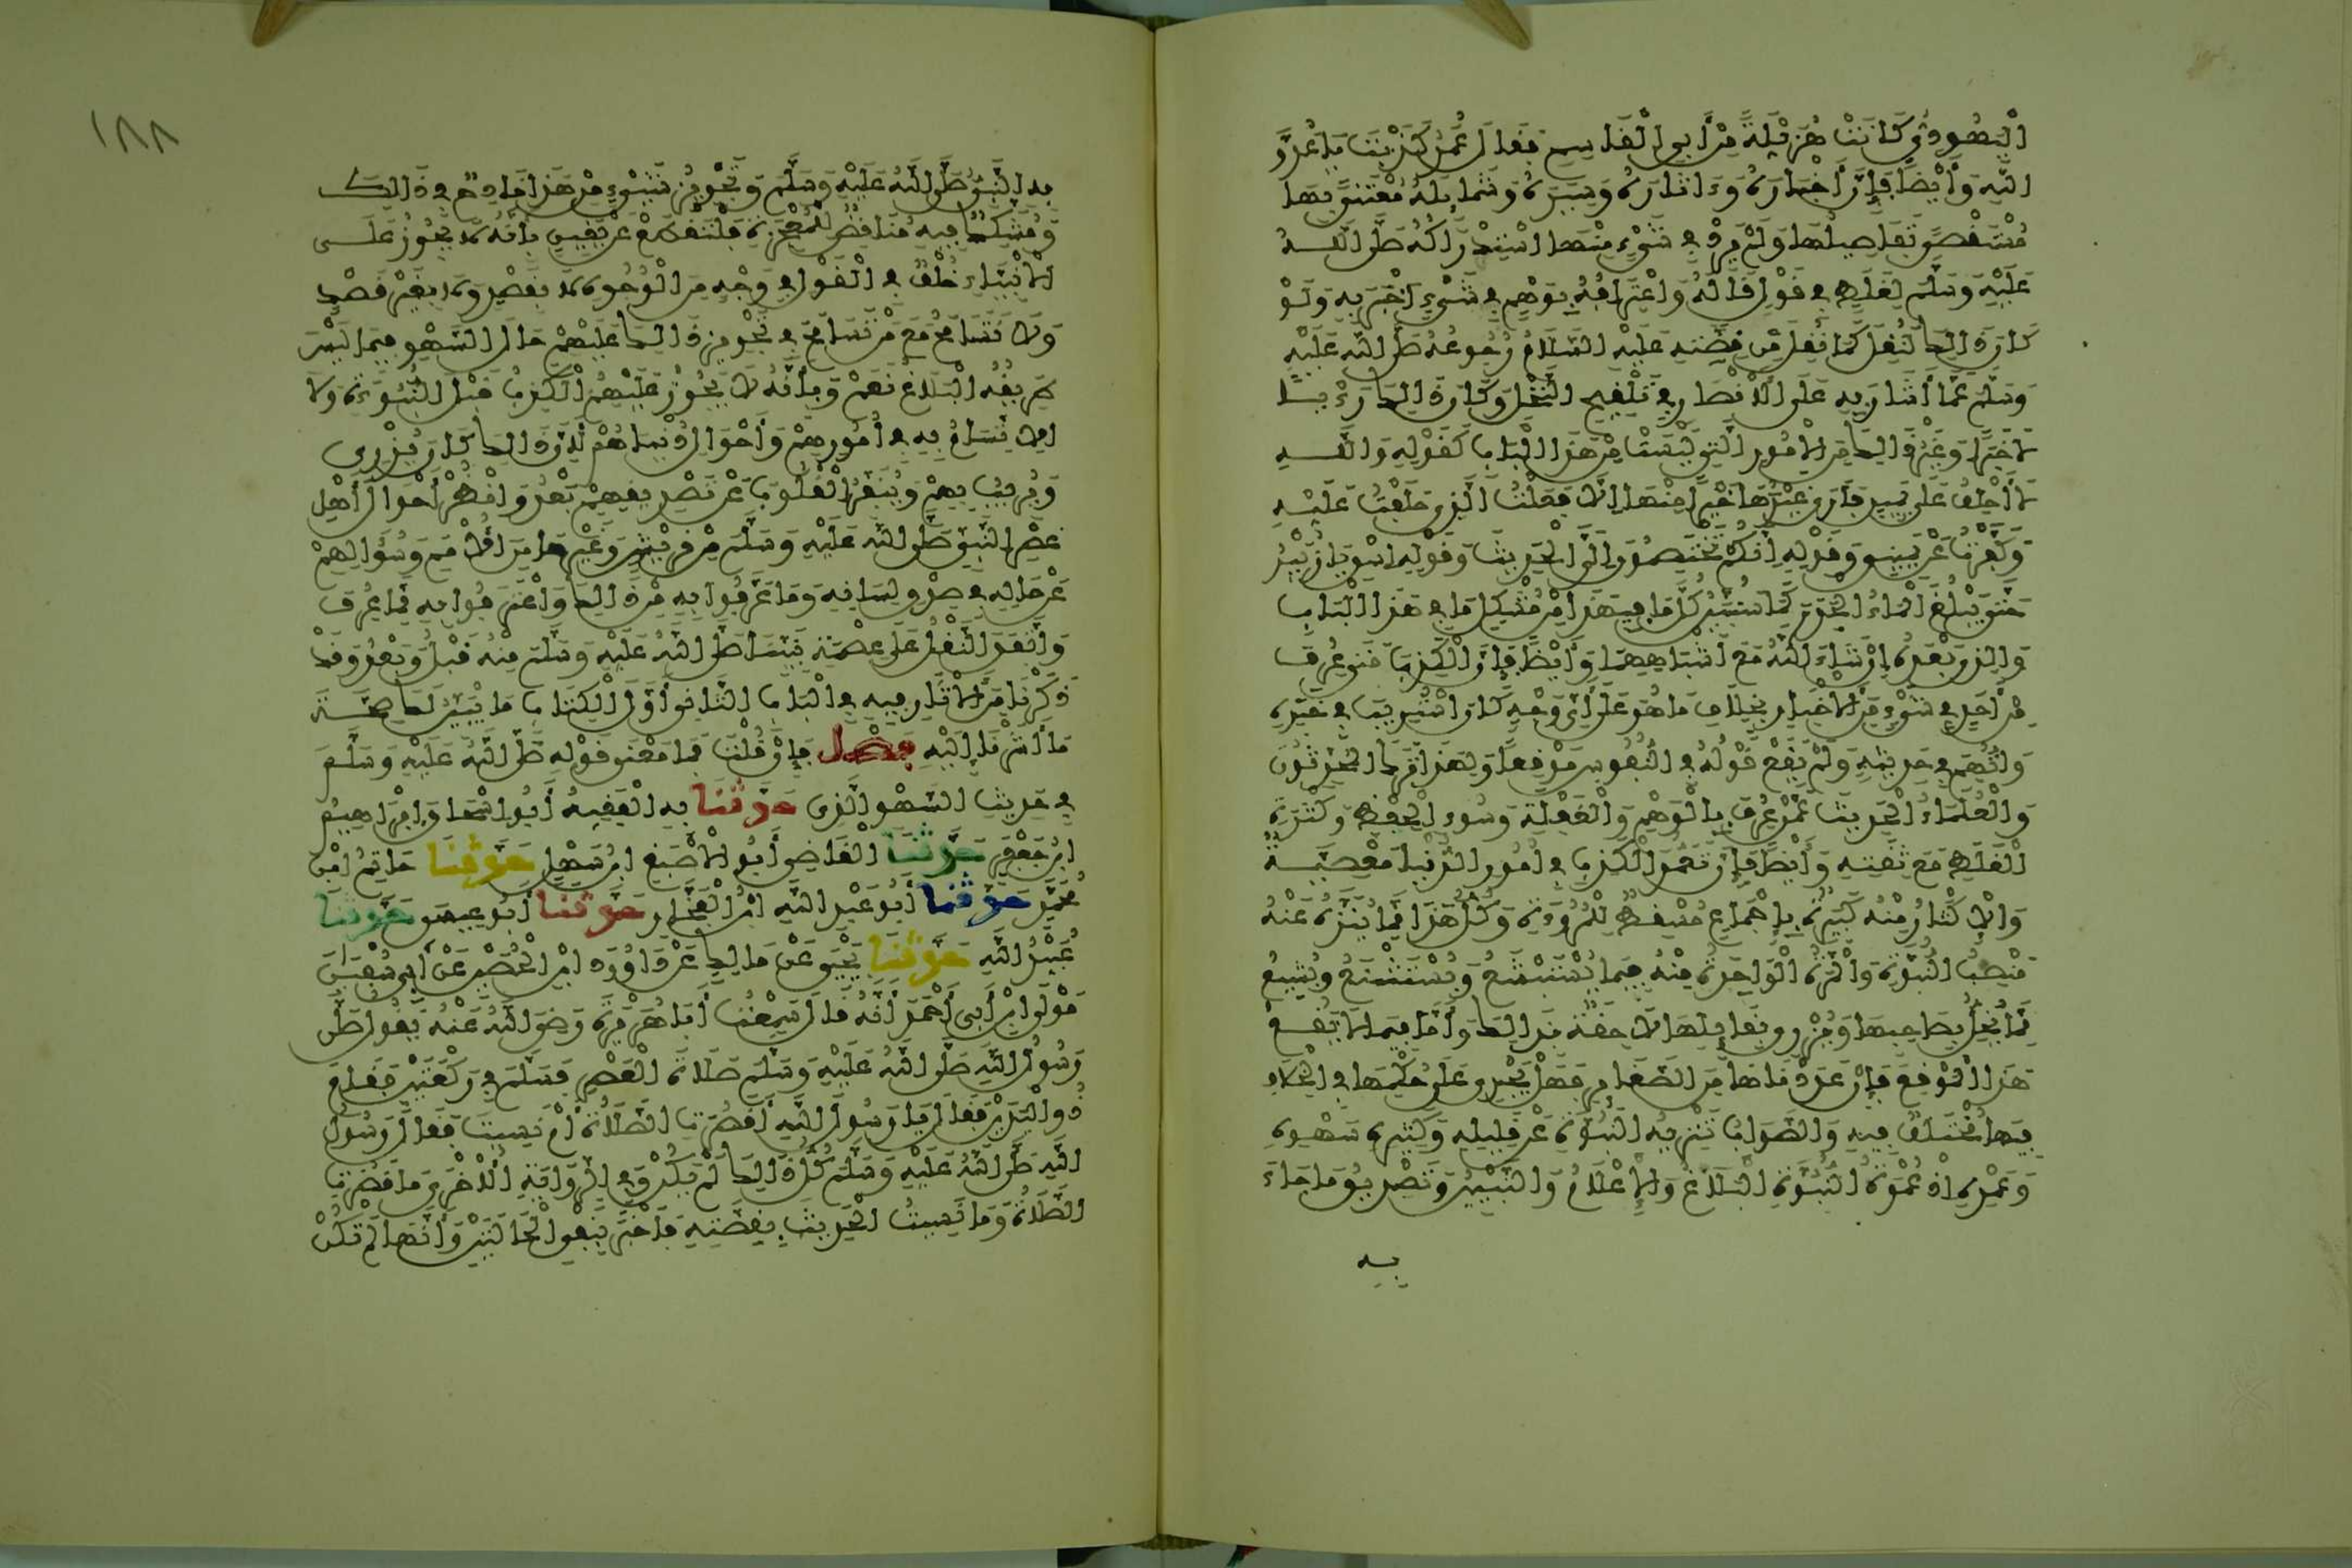 الْيَهُودِيُّ كَانَتْ هُزَيْلَةً مِنْ أَبِي الْقَاسِمِ فَقَالَ عُمَرُ كَذَبْتَ يَا عَدُوَّ
اللَّهِ وَأَيْضًا فَإِنَّ أَخْبَارَهُ وَءَاثَارَهُ وَسِيَرَهُ وَشَمَائِلَهُ مُعْتَنًى بِهَا
مُسْتَقْصًى تَفَاصِيلُهَا وَلَمْ يَرِدْ فِي شَيْءٍ مِنْهَا اسْتِدْرَاكُهُ صَلَّى اللَّهُ
عَلَيْهِ وَسَلَّمَ لِغَلَطٍ فِي قَوْلٍ قَالَهُ وَاعْتِرَافُهُ بِوَهْمٍ فِي شَيْءٍ أَخْبَرَ بِهِ وَلَوْ
كَانَ ذَلِكَ لَنُقِلَ كَمَا نُقِلَ مِنْ قِصَّتِهِ عَلَيْهِ السَّلَامُ رُجُوعُهُ صَلَّى اللَّهُ عَلَيْهِ
وَسَلَّمَ عَمَّا أَشَارَ بِهِ عَلَى الْأَنْصَارِ فِي تَلْقِيحِ النَّخْلِ وَكَانَ ذَلِكَ رَأْيًا
لَا خَبَرًا وَغَيْرُ ذَلِكَ مِنَ الْأُمُورِ الَّتِي لَيْسَتْ مِنْ هَذَا الْبَابِ كَقَوْلِهِ وَاللَّهِ
لَا أَحْلِفُ عَلَى يَمِينٍ فَأَرَى غَيْرَهَا خَيْرًا مِنْهَا إِلَّا فَعَلْتُ الَّذِي حَلَفْتُ عَلَيْهِ
وَكَفَّرْتُ عَنْ يَمِينِي وَقَوْلِهِ إِنَّكُمْ تَخْتَصِمُونَ إِلَيَّ الْحَدِيثَ وَقَوْلِهِ اسْقِ يَا زُبَيْرُ
حَتَّى يَبْلُغَ الْمَاءُ الْجَدْرَ كَمَا سَنُبَيِّنُ كُلَّ مَا فِي هَذَا مِنْ مُشْكِلِ مَا فِي هَذَا الْبَابِ
وَالَّذِي بَعْدَهُ إِنْ شَاءَ اللَّهُ مَعَ أَشْبَاهِهِمَا وَأَيْضًا فَإِنَّ الْكَذِبَ مَتَى عُرِفَ
مِنْ أَحَدٍ فِي شَيْءٍ مِنَ الْأَخْبَارِ بِخِلَافِ مَا هُوَ عَلَى أَيِّ وَجْهٍ كَانَ اسْتُرِيبَ فِي خَبَرِهِ
وَاتُّهِمَ فِي حَدِيثِهِ وَلَمْ يَقَعْ قَوْلُهُ فِي النُّفُوسِ مَوْقِعًا وَلِهَذَا تَرَكَ الْمُحَدِّثُونَ
وَالْعُلَمَاءُ الْحَدِيثَ عَمَّنْ عُرِفَ بِالْوَهْمِ وَالْغَفْلَةِ وَسُوءِ الْحِفْظِ وَكَثْرَةِ
الْغَلَطِ مَعَ ثِقَتِهِ وَأَيْضًا فَإِنَّ تَعَمُّدَ الْكَذِبِ فِي أُمُورِ الدُّنْيَا مَعْصِيَةٌ
وَالْإِكْثَارُ مِنْهُ كَبِيرَةٌ بِإِجْمَاعٍ مُسْقِطٌ لِلْمُرُوءَةِ وَكُلُّ هَذَا مِمَّا يُنَزَّهُ عَنْهُ
مَنْصِبُ النُّبُوَّةِ وَالْمَرَّةُ الْوَاحِدَةُ مِنْهُ فِيمَا يُسْتَبْشَعُ وَيُسْتَشْنَعُ وَيُشِيعُ
مِمَّا يُخِلُّ بِصَاحِبِهَا وَيُزْرِي بِقَائِلِهَا لَاحِقَةٌ بِذَلِكَ وَأَمَّا فِيمَا لَا يَقَعُ
هَذَا الْمَوْقِعَ فَإِنْ عَدَدْنَاهَا مِنَ الصَّغَائِرِ فَهَلْ يَجْرِي عَلَى حُكْمِهَا فِي الْخِلَافِ
فِيهَا مُخْتَلَفٌ فِيهِ وَالصَّوَابُ تَنْزِيهُ النُّبُوَّةِ عَنْ قَلِيلِهِ وَكَثِيرِهِ سَهْوِهِ
وَعَمْدِهِ إِذْ عُمْدَةُ النُّبُوَّةِ الْبَلَاغُ وَالْإِعْلَامُ وَالتَّبْيِينُ وَتَصْدِيقُ مَا جَاءَ
بِهِ
١٨٨
بِهِ النَّبِيُّ صَلَّى اللَّهُ عَلَيْهِ وَسَلَّمَ وَتَجْوِيزُ شَيْءٍ مِنْ هَذَا قَادِحٌ فِي ذَلِكَ
وَمُشَكِّكٌ فِيهِ مُنَاقِضٌ لِلْمُعْجِزَةِ فَلْنَقْطَعْ عَنْ يَقِينٍ بِأَنَّهُ لَا يَجُوزُ عَلَى
الْأَنْبِيَاءِ خُلْفٌ فِي الْقَوْلِ فِي وَجْهٍ مِنَ الْوُجُوهِ لَا بِقَصْدٍ وَلَا بِغَيْرِ قَصْدٍ
وَلَا نَتَسَامَحُ مَعَ مَنْ تَسَامَحَ فِي تَجْوِيزِ ذَلِكَ عَلَيْهِمْ حَالَ السَّهْوِ فِيمَا لَيْسَ
طَرِيقُهُ الْبَلَاغُ نَعَمْ وَبِأَنَّهُ لَا يَجُوزُ عَلَيْهِمُ الْكَذِبُ قَبْلَ النُّبُوَّةِ وَلَا
الِاتِّسَامُ بِهِ فِي أُمُورِهِمْ وَأَحْوَالِ دُنْيَاهُمْ لِأَنَّ ذَلِكَ كَانَ يُزْرِي
وَيُرِيبُ بِهِمْ وَيُنَفِّرُ الْقُلُوبَ عَنْ تَصْدِيقِهِمْ بَعْدُ وَانْظُرْ أَحْوَالَ أَهْلِ
عَصْرِ النَّبِيِّ صَلَّى اللَّهُ عَلَيْهِ وَسَلَّمَ مِنْ قُرَيْشٍ وَغَيْرِهَا مِنَ الْأُمَمِ وَسُؤَالِهِمْ
عَنْ حَالِهِ فِي صِدْقِ لِسَانِهِ وَمَا عُرِفُوا بِهِ مِنْ ذَلِكَ وَاعْتَرَفُوا بِهِ مِمَّا عُرِفَ
وَاتَّفَقَ النَّقْلُ عَلَى عِصْمَةِ نَبِيِّنَا صَلَّى اللَّهُ عَلَيْهِ وَسَلَّمَ مِنْهُ قَبْلُ وَبَعْدُ وَقَدْ
ذَكَرْنَا مِنَ الْآثَارِ فِيهِ فِي الْبَابِ الثَّانِي أَوَّلَ الْكِتَابِ مَا يُبَيِّنُ لَكَ صِحَّةَ
مَا أَشَرْنَا إِلَيْهِ فَصْلٌ فَإِنْ قُلْتَ فَمَا مَعْنَى قَوْلِهِ صَلَّى اللَّهُ عَلَيْهِ وَسَلَّمَ
فِي حَدِيثِ السَّهْوِ الَّذِي حَدَّثَنَا بِهِ الْفَقِيهُ أَبُو إِسْحَاقَ إِبْرَاهِيمُ
ابْنُ جَعْفَرٍ حَدَّثَنَا الْقَاضِي أَبُو الْأَصْبَغِ ابْنُ سَهْلٍ حَدَّثَنَا حَاتِمُ ابْنُ
مُحَمَّدٍ حَدَّثَنَا أَبُو عَبْدِ اللَّهِ ابْنُ الْفَخَّارِ حَدَّثَنَا أَبُو عِيسَى حَدَّثَنَا
عُبَيْدُ اللَّهِ حَدَّثَنَا يَحْيَى عَنْ مَالِكٍ عَنْ دَاوُدَ ابْنِ الْحُصَيْنِ عَنْ أَبِي سُفْيَانَ
مَوْلَى ابْنِ أَبِي أَحْمَدَ أَنَّهُ قَالَ سَمِعْتُ أَبَا هُرَيْرَةَ رَضِيَ اللَّهُ عَنْهُ يَقُولُ صَلَّى
رَسُولُ اللَّهِ صَلَّى اللَّهُ عَلَيْهِ وَسَلَّمَ صَلَاةَ الْعَصْرِ فَسَلَّمَ فِي رَكْعَتَيْنِ فَقَامَ
ذُو الْيَدَيْنِ فَقَالَ يَا رَسُولَ اللَّهِ أَقَصُرَتِ الصَّلَاةُ أَمْ نَسِيتَ فَقَالَ رَسُولُ
اللَّهِ صَلَّى اللَّهُ عَلَيْهِ وَسَلَّمَ كُلُّ ذَلِكَ لَمْ يَكُنْ وَفِي الرِّوَايَةِ الْأُخْرَى مَا قَصُرَتِ
الصَّلَاةُ وَمَا نَسِيتُ الْحَدِيثَ بِقِصَّتِهِ فَأَخْبَرَ بِنَفْيِ الْحَالَتَيْنِ وَأَنَّهَا لَمْ تَكُنْ